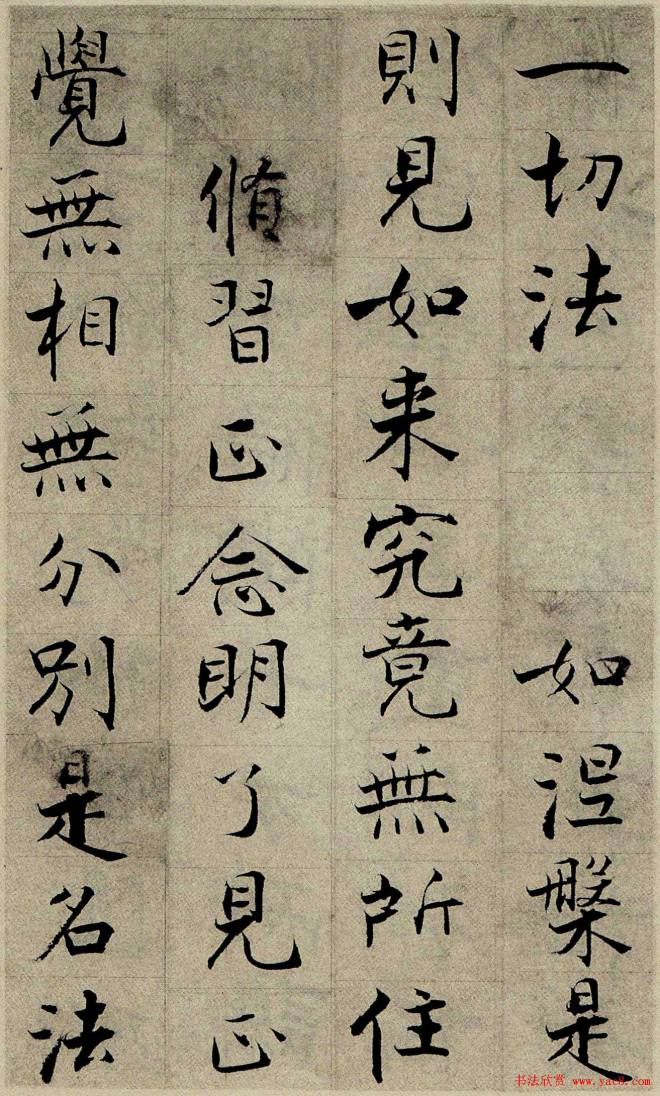 一切法 如涅槃是
則見如来究竟無所住
脩習正念明了見正
覺無相無分別是名法
书法欣赏 www.yac8.com